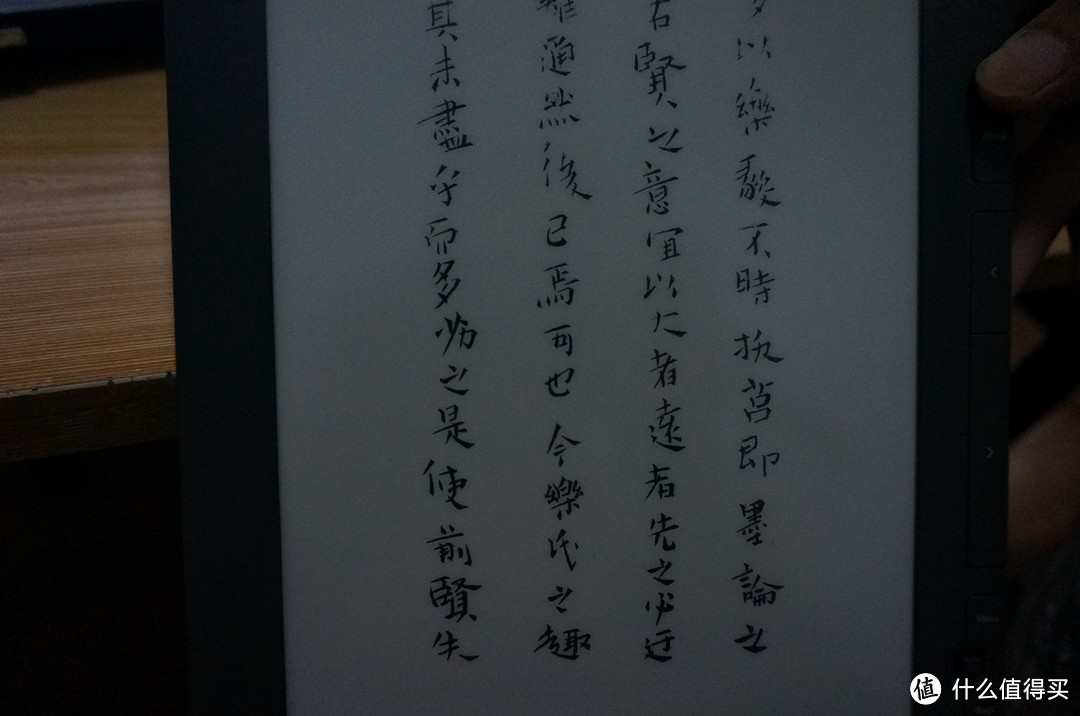 多以樂毅不時拔莒即墨論之
古賢之意宜以大者遠者先之必迂
難通然後已焉可也今樂氏之趣
其未盡乎而多劣之是使前賢失
Menu
值 什么值得买